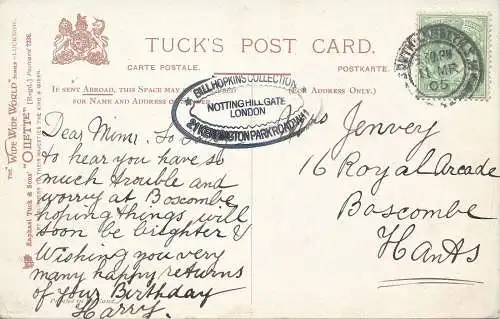 TUCK'S POST CARD.
CARTE POSTALE.
POSTKARTE.
IF SENT ABROAD, THIS SPACE MAY
FOR NAME AND ADDRESS
(FOR ADDRESS ONLY.)
THE "WIDE WIDE WORLD" SERIES—LUCKNOW.
Raphael Tuck & Sons' "OILETTE" [Regd.] Postcard
THEIR MAJESTIES THE KING & QUEEN
BILL HOPKINS COLLECTION
NOTTING HILL GATE
LONDON
KENSINGTON PARK ROAD W11
MR
05
Dear Minn. So
to hear you have so
much trouble and
worry at Boscombe
hoping things will
soon be brighter &
Wishing you very
many happy returns
of your Birthday
Harry.
Jenvey
16 Royal Arcade
Boscombe
Hants